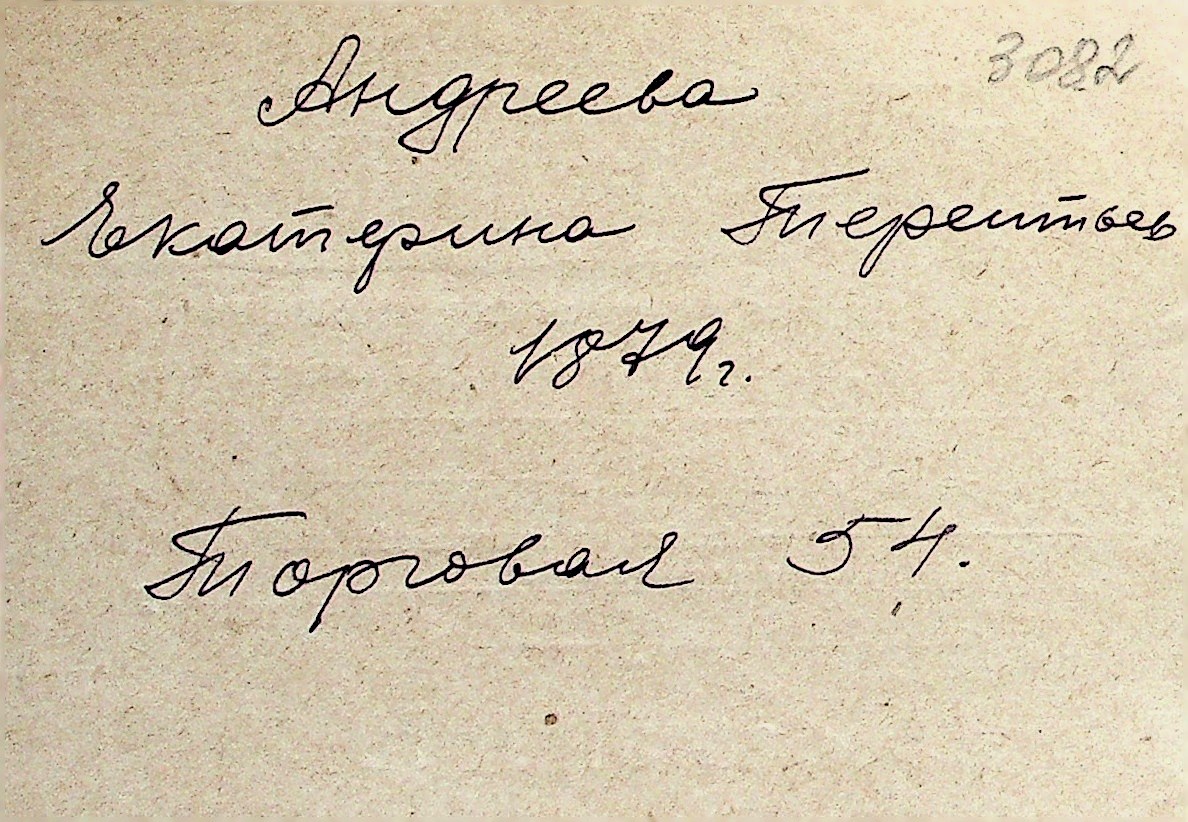 3082
Андреева
Екатерина Терентьев
1879г.
Торговая 54.